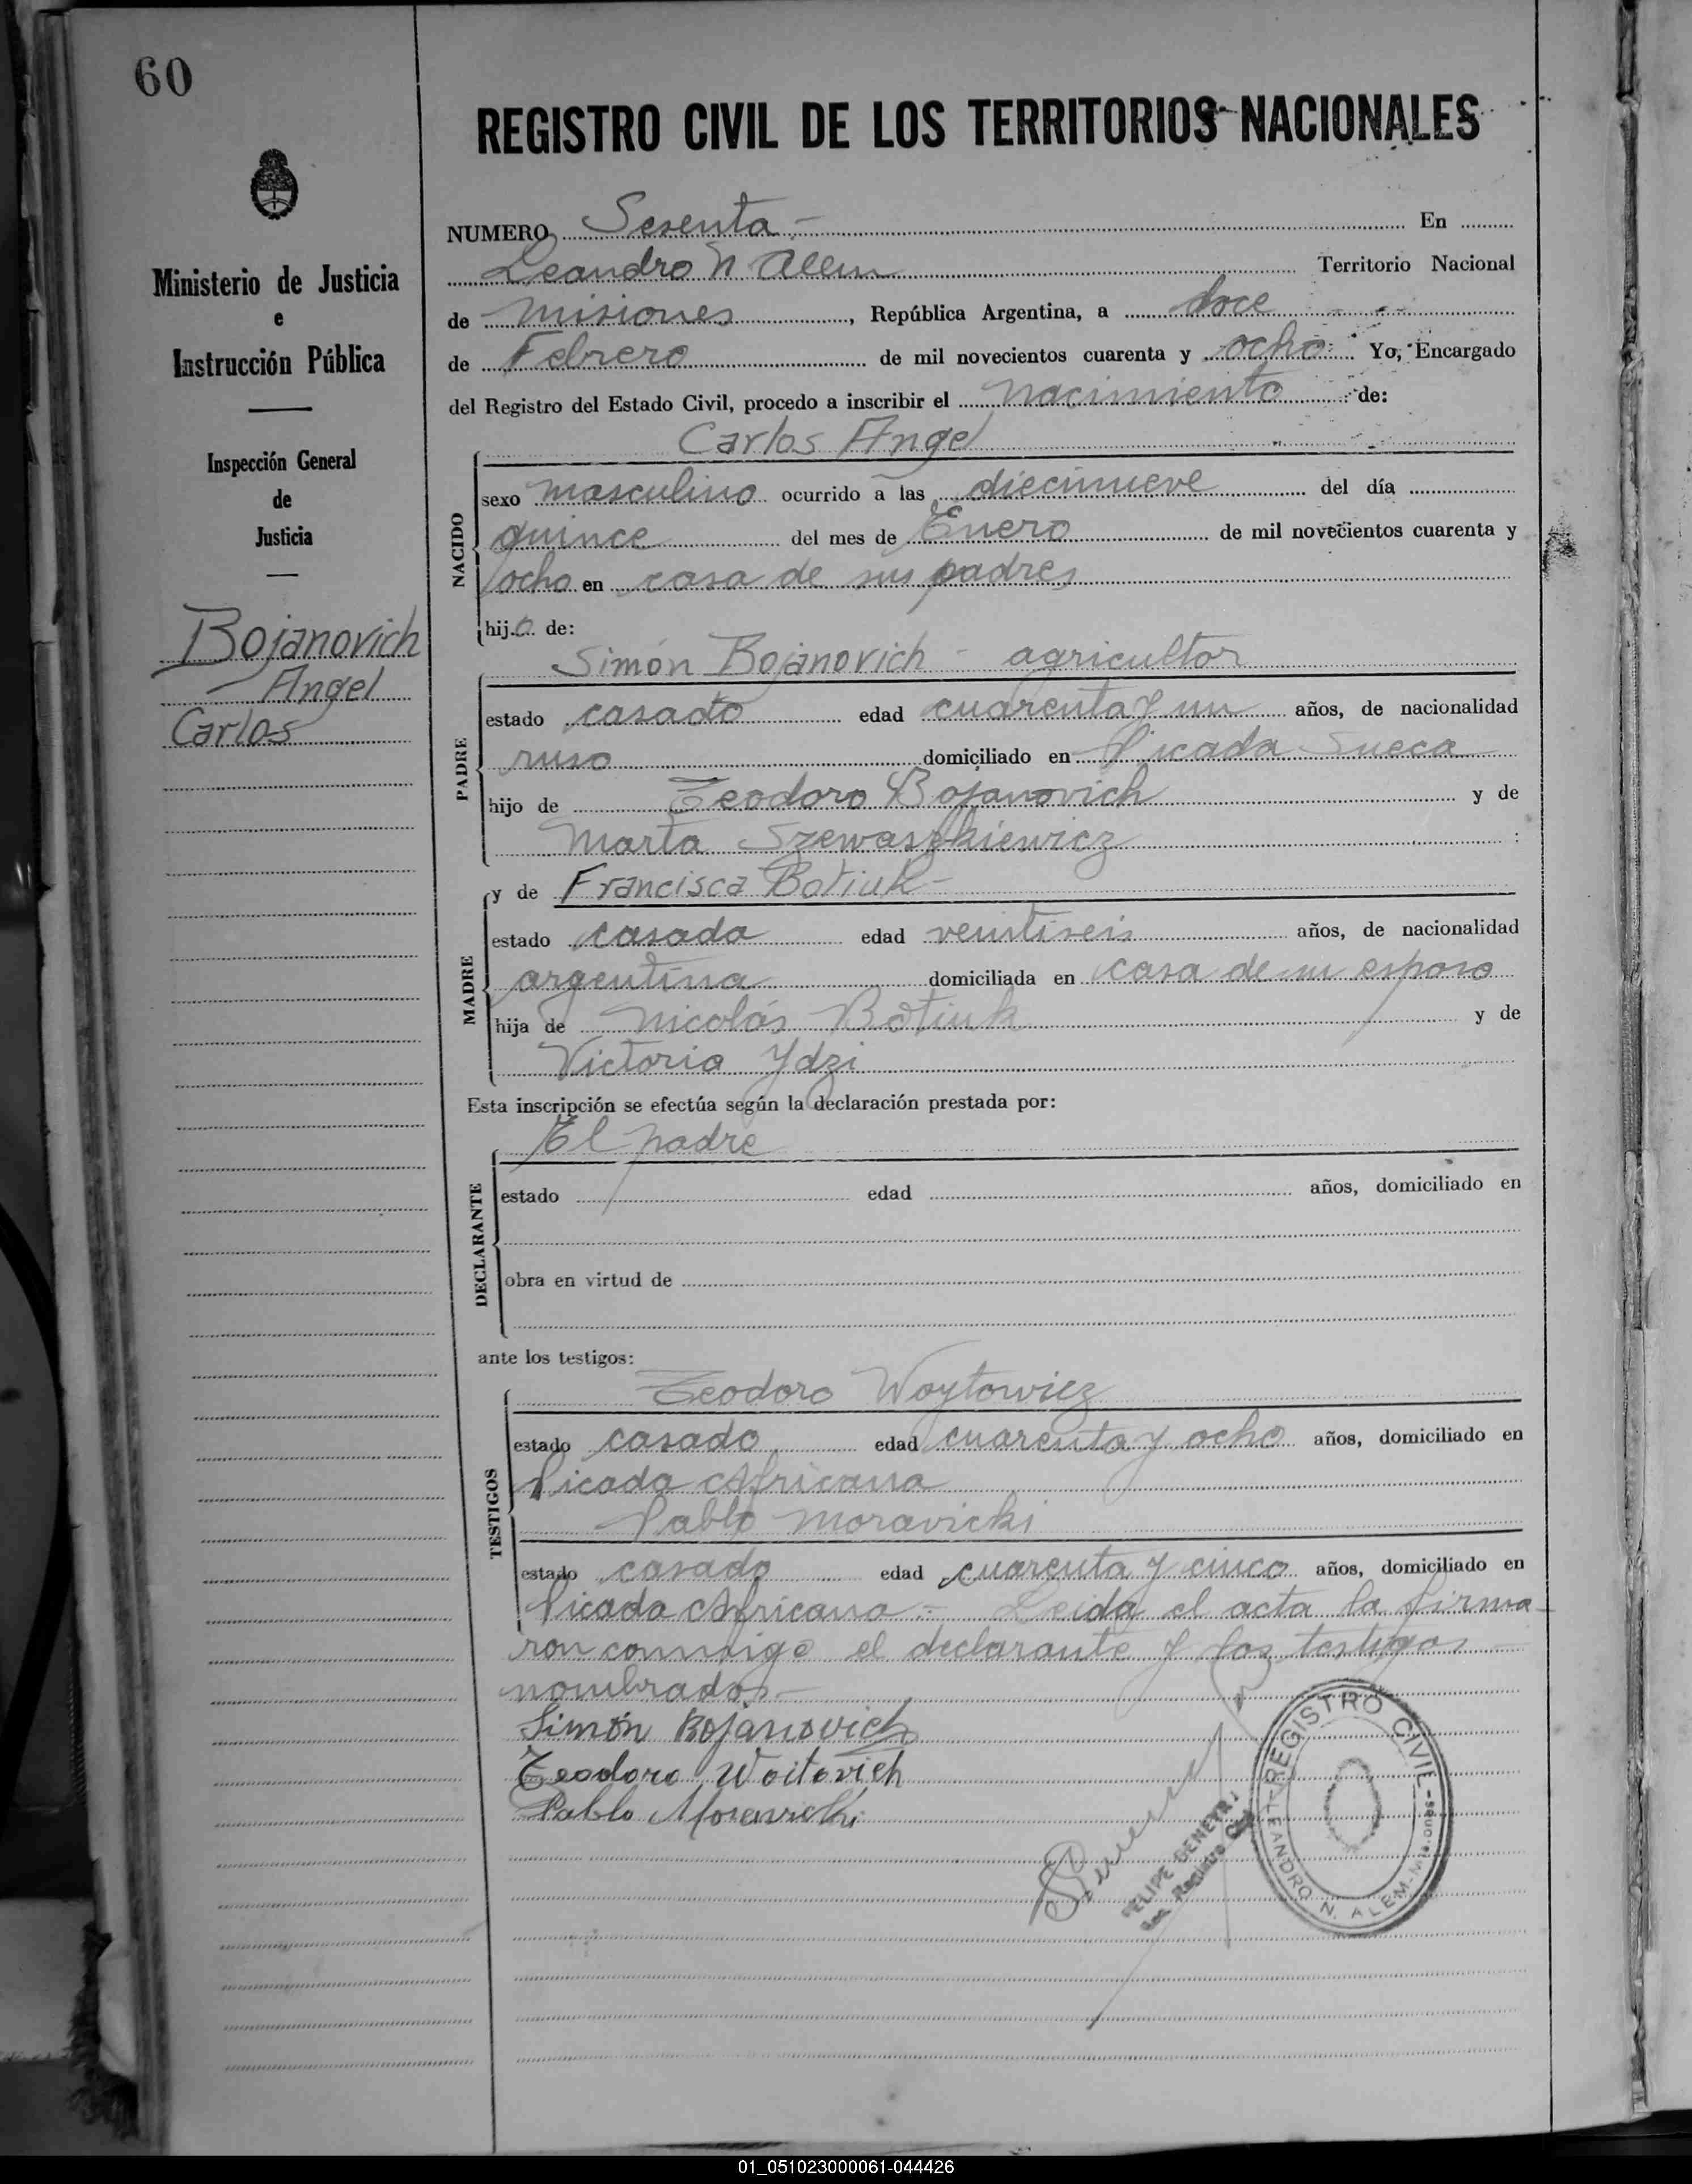 60
REGISTRO CIVIL DE LOS TERRITORIOS NACIONALES
Ministerio de Justicia
e
Instrucción Pública
Inspección General
de
Justicia
Bojanovich
Angel
Carlos
NUMERO Sesenta.- En
Leandro N Alem Territorio Nacional
de Misiones, República Argentina, a doce
de Febrero de mil novecientos cuarenta y ocho. Yo, Encargado
del Registro del Estado Civil, procedo a inscribir el nacimiento de:
Carlos Angel
NACIDO
sexo masculino ocurrido a las diecinueve del día
quince del mes de Enero de mil novecientos cuarenta y
ocho en casa de sus padres
hijo de:
Simón Bojanovich - agricultor
PADRE
estado casado edad cuarenta y un años, de nacionalidad
ruso domiciliado en Picada Sueca
hijo de Teodoro Bojanovich y de
Marta Szewaszkiewicz
y de Francisca Botiuk-
MADRE
estado casada edad veintiseis años, de nacionalidad
argentina domiciliada en casa de su esposo
hija de Nicolás Botiuk y de
Victoria Ydzi
Esta inscripción se efectúa según la declaración prestada por:
El padre
DECLARANTE
estado edad años, domiciliado en
obra en virtud de
ante los testigos:
Teodoro Woytowicz
TESTIGOS
estado casado edad cuarenta y ocho años, domiciliado en
Picada Africana
Pablo Moravicki
estado casado edad cuarenta y cinco años, domiciliado en
Picada Africana.- Leida el acta la firma-
ron conmigo el declarante y los testigos
nombrados-
Simón Bojanovich
Teodoro Woitovich
Pablo
FELIPE GENEYR
Registro
REGISTRO CIVIL
LEANDRO N. ALEM-Misiones-
01_051023000061-044426